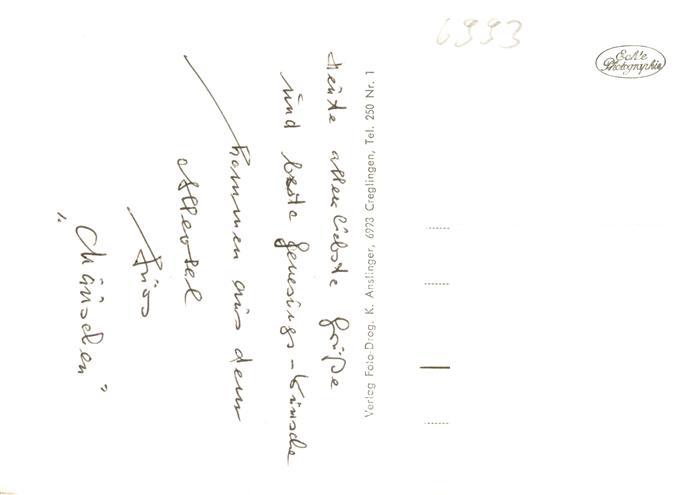 6993
Echte
Photographie
Heute allerliebste Grüße
und beste Genesungs-Wünsche
kommen aus dem
Allertal
Tüss
"Mäuschen"
Verlag Foto-Drog. K. Anslinger, 6993 Creglingen, Tel. 250 Nr. 1